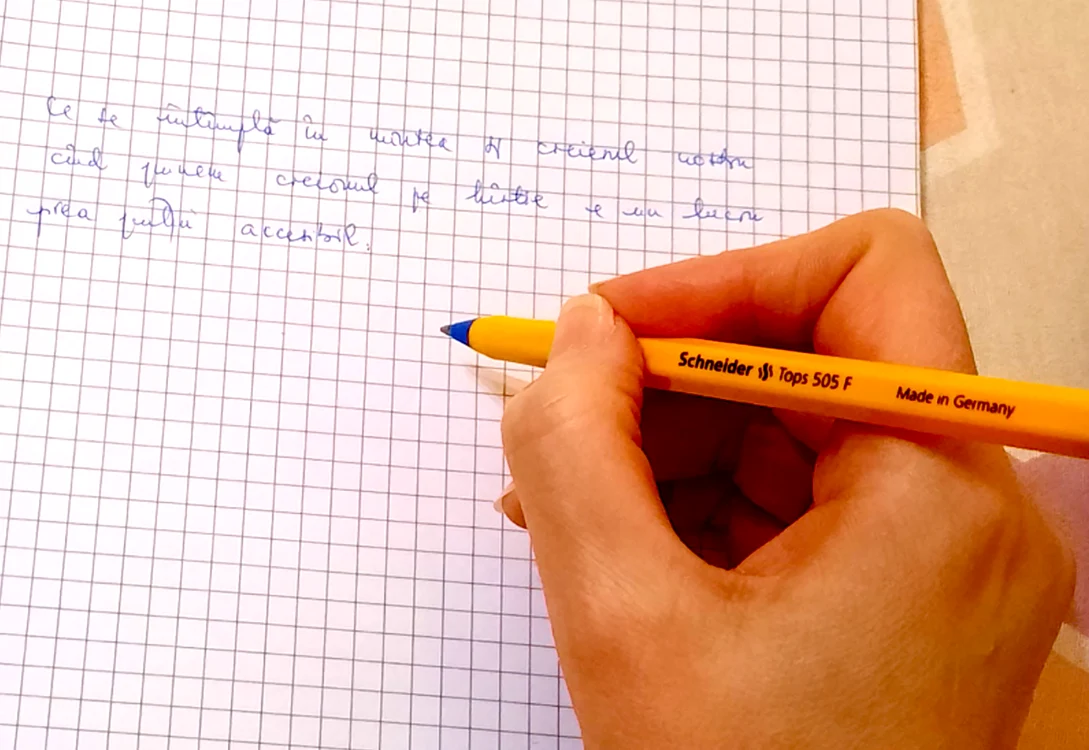 Ce se întîmplă în mintea și creierul nostru
cînd punem creionul pe hîrtie e un lucru
prea puțin accesibil.
Schneider Tops 505 F Made in Germany